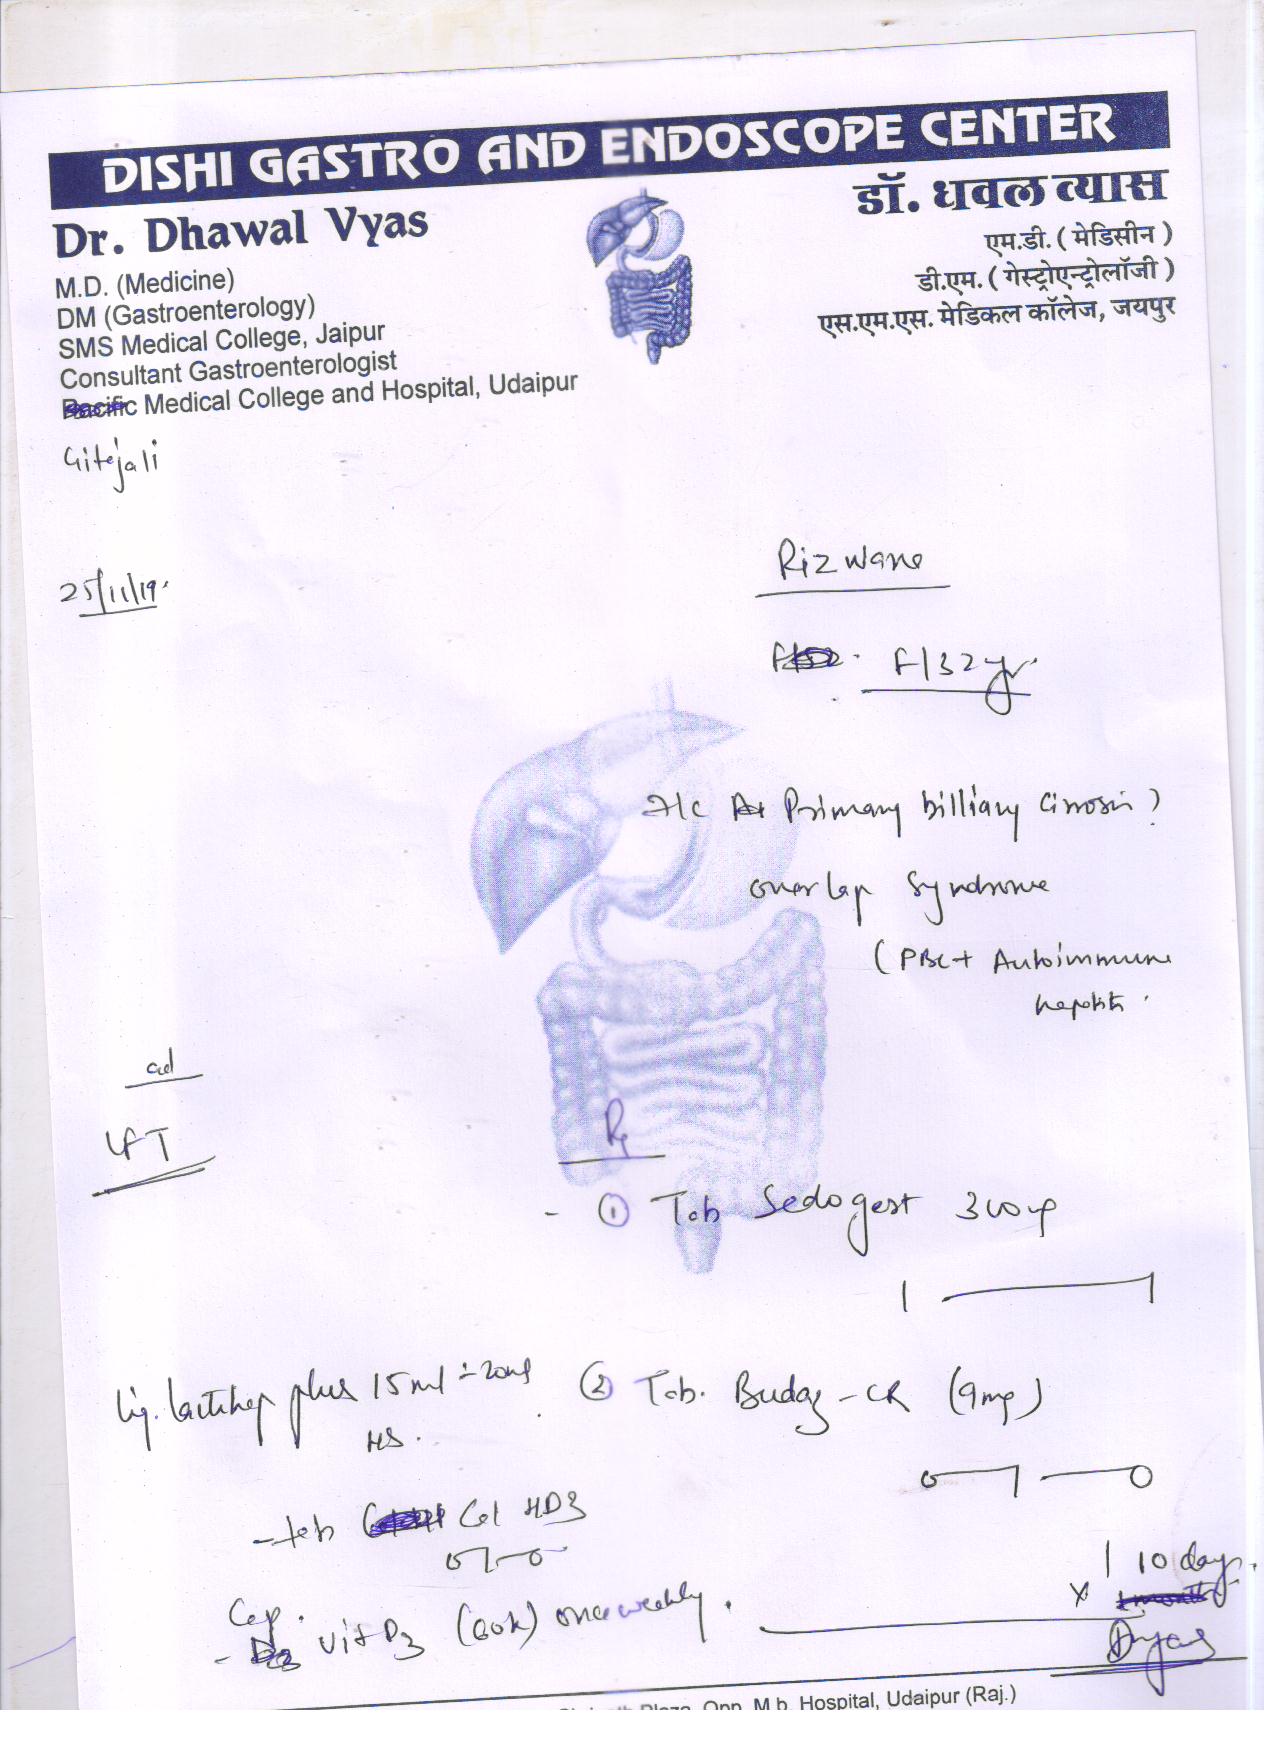 DISHI GASTRO AND ENDOSCOPE CENTER
Dr. Dhawal Vyas
M.D. (Medicine)
DM (Gastroenterology)
SMS Medical College, Jaipur
Consultant Gastroenterologist
Pacific Medical College and Hospital, Udaipur
डॉ. धवल व्यास
एम.डी. ( मेडिसीन )
डी.एम. ( गेस्ट्रोएन्ट्रोलॉजी )
एस.एम.एस. मेडिकल कॉलेज, जयपुर
Gitejali
25/11/19
Rizwana
F/32yr.
Primary billiary Cirrosis ?
overlap Syndrome
(PBC + Autoimmune
hepatitis
ad
LFT
Rx
- ① Tab 300mg
1 — 1
Liq. plus 15ml - 20ml
HS.
② Tab. - CR (9mg)
0 — 1 — 0
- tab Cel HD3
0 1 - 0
- Cap. Vit D3 (60k) once weekly.
x 10 days.
Dvyas
Plaza, Opp. M.b. Hospital, Udaipur (Raj.)